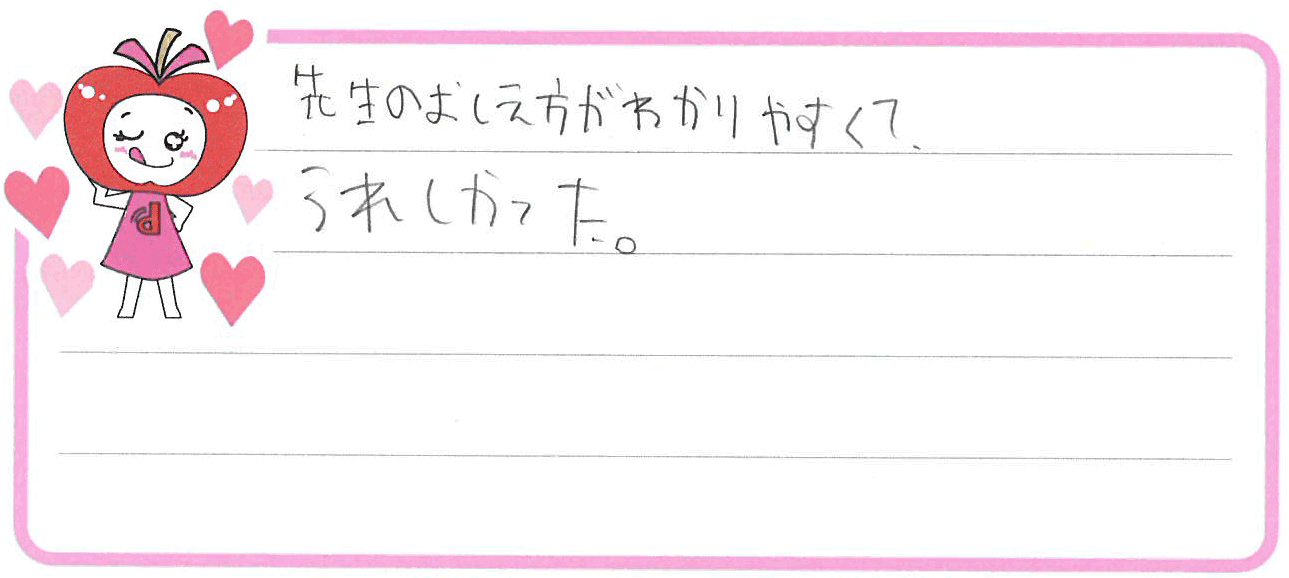 先生のおしえ方がわかりやすくて、
うれしかった。